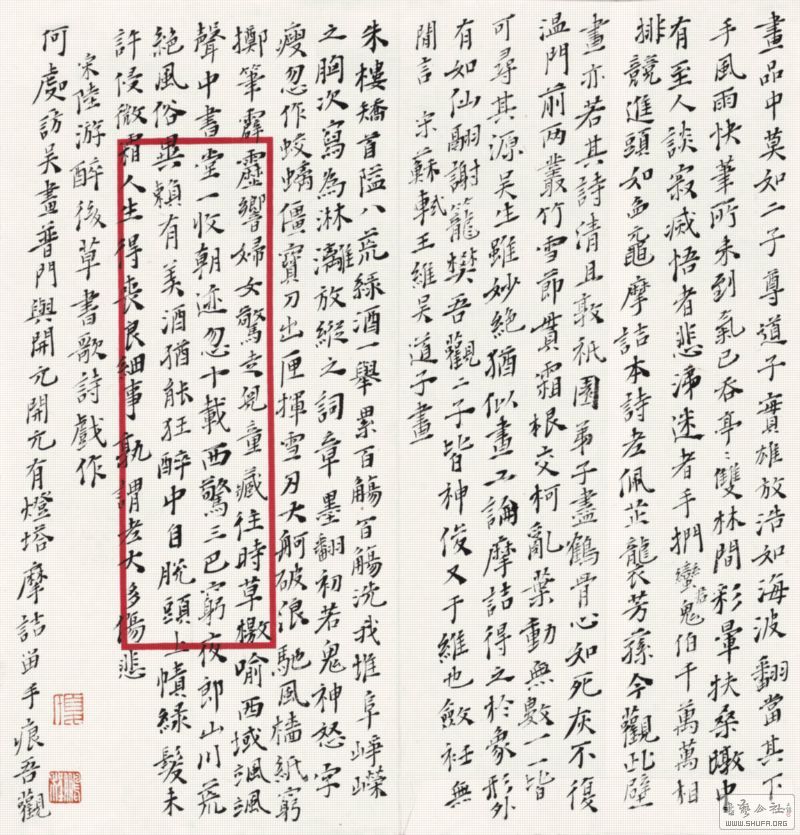 畫品中莫如二子尊道子實雄放浩如海波翻當其下
手風雨快筆所未到氣已吞亭亭雙林間彩暈扶桑暾中
有至人談寂滅悟者悲涕迷者手捫蠻君鬼伯千萬萬相
排競進頭如黿摩詰本詩老佩芷襲芳蓀今觀此壁
畫亦若其詩清且敦祇園弟子盡鶴骨心如死灰不復
温門前兩叢竹雪節貫霜根交柯亂葉動無數一一皆
可尋其源吳生雖妙絕猶似畫工論摩詰得之於象形外
有如仙翮謝籠樊吾觀二子皆神俊又于維也斂衽無
間言 宋蘇軾王維吳道子畫
朱樓矯首隘八荒綠酒一舉累百觴百觴洗我堆阜崢嶸
之胸次寫為淋灕放縱之詞章墨翻初若鬼神怒字
瘦忽作蛟螭僵寶刀出匣揮雪刃大舸破浪馳風檣紙窮
擲筆霹靂響婦女驚走兒童藏往時草檄喻西域颯颯
聲中書堂一收朝迹忽十載西驚三巴窮夜郎山川荒
絕風俗異賴有美酒猶能狂醉中自脫頭上幘綠髮未
許侵微霜人生得喪良細事孰謂老大多傷悲
宋陸游醉後草書歌詩戲作
何處訪吳畫普門與開元開元有燈塔摩詰留手痕吾觀
WWW.SHUFA.ORG